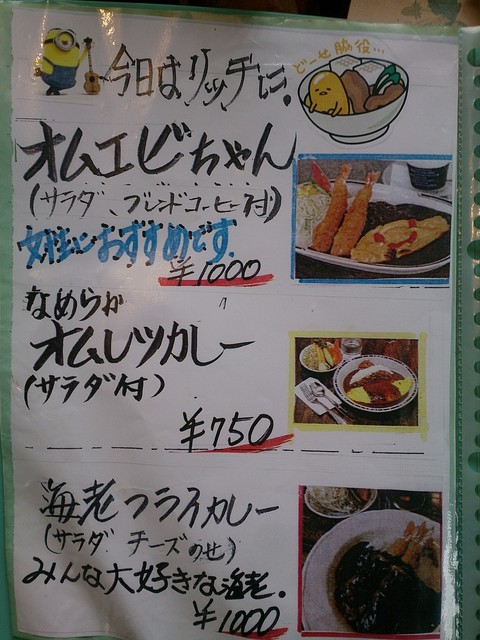 今日はリッチに。
どーせ脇役…
オムエビちゃん
(サラダ、ブレンドコーヒー付)
女性におすすめです。
¥1000
なめらか
オムレツカレー
(サラダ付)
¥750
海老フライカレー
(サラダ チーズのせ)
みんな大好きな海老。
¥1000